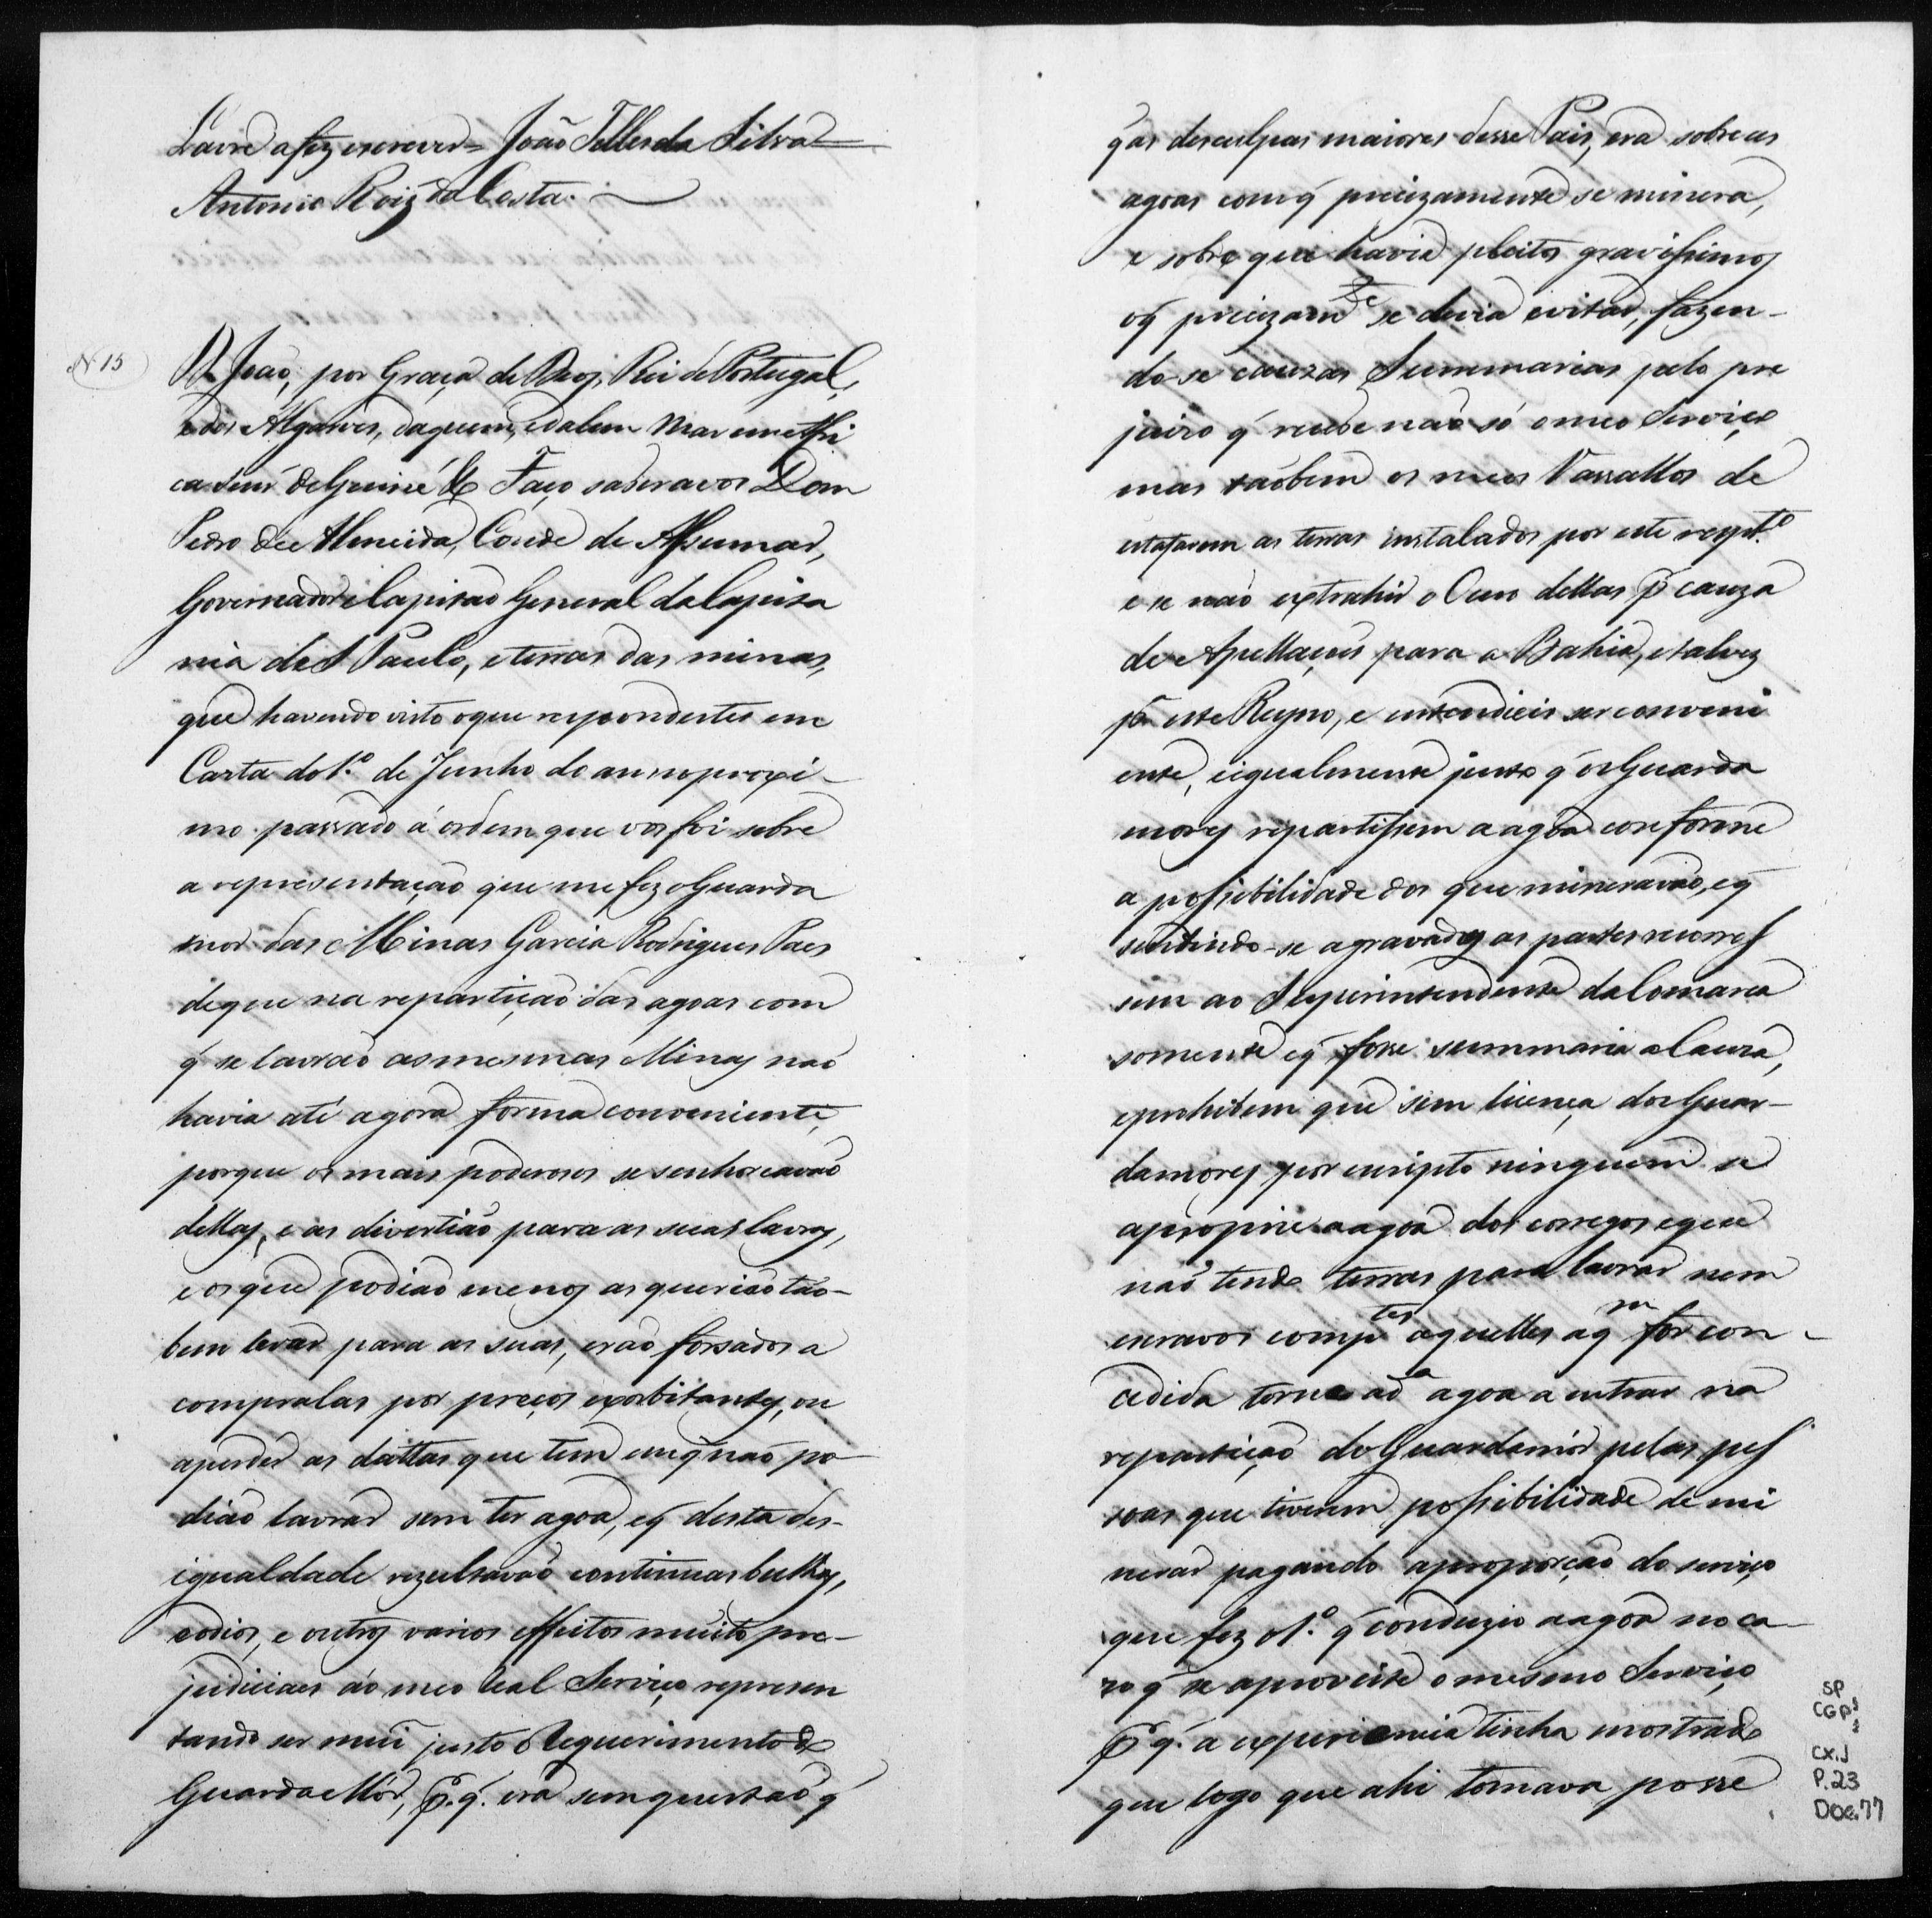 Lavre a fez escrever = João Telles da Silva =
Antonio Roiz da Costa.
N 15
D. João, por Graça de Deos, Rei de Portugal,
e dos Algarves, daquem, edalem Mar em Afri
ca Senr̃ de Guiné &c Faço saber a vos Dom
Pedro de Almeida, Conde de Assumar,
Governador e Capitaõ General da Capita
nia de S Paulo, e terras das minas,
que havendo visto oque respondestes em
Carta do 1.º de Junho do anno proxi-
mo passado á ordem que vos foi sobre
a representaçaõ que me fez o Guarda
mor das Minas Garcia Rodrigues Paes
de que na repartiçaõ das agoas com
q̃ se lavraõ as mesmas Minas naõ
havia até agora forma conveniente,
porque os mais poderosos se senhoreavaõ
dellas, e as divertiaõ para as suas lavras,
e os que podiaõ menos as queriaõ tão-
bem levar para as suas, eraõ forsados a
compralas por preços exorbitantes, ou
a perder as dattas que tem em q̃ naõ po
diaõ lavrar sem ter agoa, eq̃ desta des-
igualdade rezultavaõ continuas bulhas,
e odios, e outros varios effeitos muito pre-
judiciaes ao meo Real Serviço represen
tando ser mui justo o Requerimento do
Guarda Mór, p.q̃. era sem questaõ q̃
q̃ as desculpas maiores desse Pais, era sobre as
agoas com q̃ precizamente se minera,
e sobre que havia pleitos gravissimos
oq̃ precizam.te se devia evitar, fazen-
do-se cauzas Summarias pelo pre
juizo q̃ recebe naõ só o meo Serviço
mas taõbem os meos Vassallos de
estarem as terras instalados por este resp.to
e se naõ extrahir o Ouro dellas p̃ cauza
de Apellaçoẽs para a Bahia, e talvez
p̃a este Reyno, e entendieis ser conveni
ente, e igualmente justo q̃ os Guarda
mores repartissem a agoa conforme
a possiebilidade dos que mineravaõ, eq̃
sentindo-se agravados as partes recorres
sem ao Superintendente da Comarca
somente eq̃ fosse summaria a Cauza,
e prohibem que sem licença dos Guar-
damores por escripto ninguem se
aproprie a agoa dos corregos eque
naõ tendo terras para lavrar nem
escravos comp.tes aquelles a q.m for con-
cedida torne a d.a agoa a entrar na
repartiçaõ do Guardamór pelas pes
soas que tiverem possibilidade de mi
nerar pagando a proporçaõ do serviço
que fez o 1.º q̃ conduzio a agoa no ca
zo q̃ se aproveite o mesmo Serviço
p.q̃. a experiencia tinha mostrado
que logo que ahi tomava posse
SP
CGP
CX.1
P.23
Doc.77